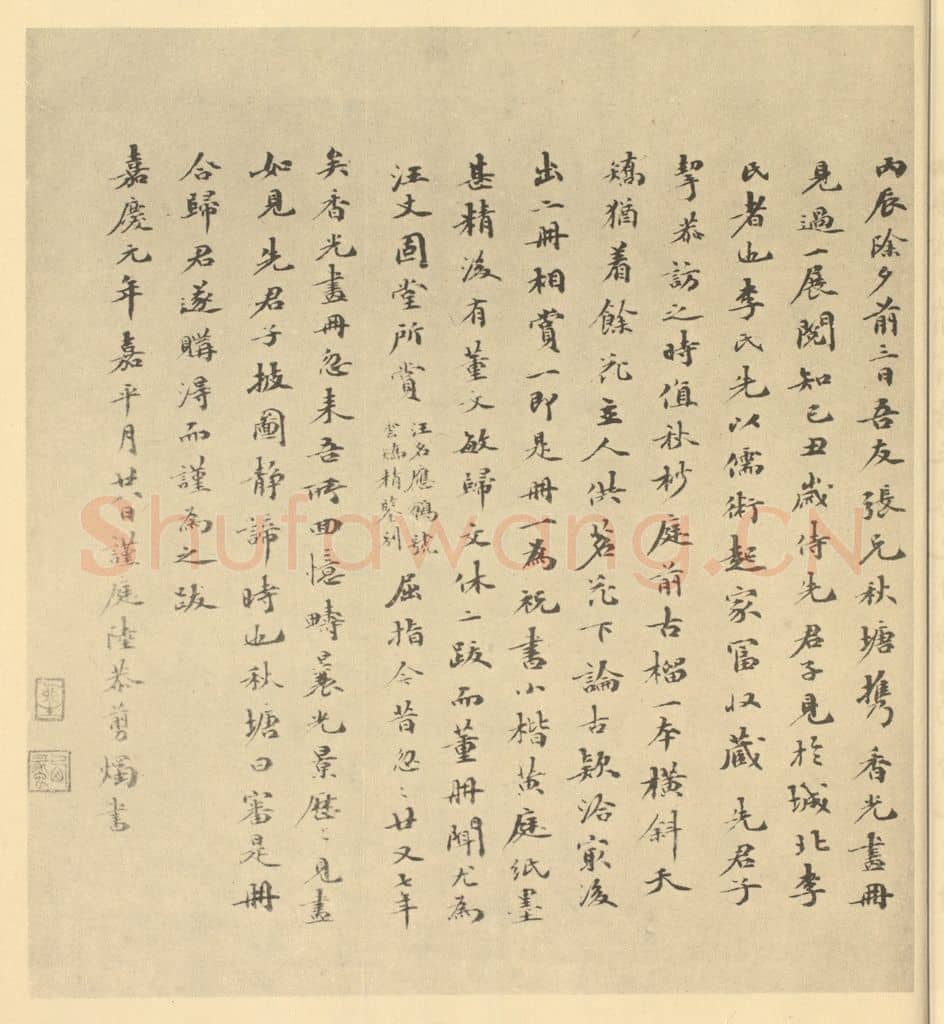 丙辰除夕前三日吾友張兄秋塘攜香光畫冊
見過一展閱知己丑歲侍先君子見於城北李
氏者也李氏先以儒術起家富收藏先君子
挈恭訪之時值秋杪庭前古榴一本橫斜夭
矯猶着餘花主人供茗花下論古款洽最後
出二冊相賞一即是冊一為祝書小楷黃庭紙墨
甚精後有董文敏歸文休二跋而董冊聞尤為
汪丈固堂所賞
汪名應鶴號
雲嶠精鑒別
屈指今昔忽〻廿又七年
矣香光畫冊忽来吾所回憶疇曩光景歷〻見畫
如見先君子披圖靜諦時也秋塘曰審是冊
合歸君遂購得而謹為之跋
嘉慶元年嘉平月廿八日謹庭陸恭剪燭書
Shufawang.CN